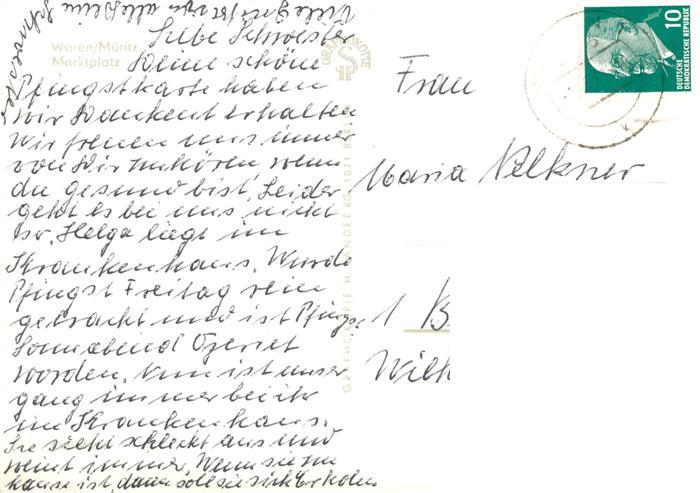 Waren/Müritz
Marktplatz
Liebe Schwester
Deine schöne
Pfingstkarte haben
wir Dankent erhalten
Wir freuen uns immer
von Dir zu hören wenn
du gesund bist, Leider
geht es bei uns nicht
so, Helga liegt im
Krankenhaus, Wurde
Pfingst Freitag rein
gebracht und ist Pfings
Sonnabend Operiet
worden, Nun ist unser
gang immer bei ihr
im Krankenhaus.
Sie sieht schlecht aus und
weint immer, Wenn sie zu
hause ist, dann soll sie sich erholen
Viele Grüße von alle Deine
Schwester
Frau
Maria Velkner
1 B
Wilh
10
DEUTSCHE
DEMOKRATISCHE REPUBLIK
GRAPHOKOPIE H. SANDER KG, 1071 BERLIN